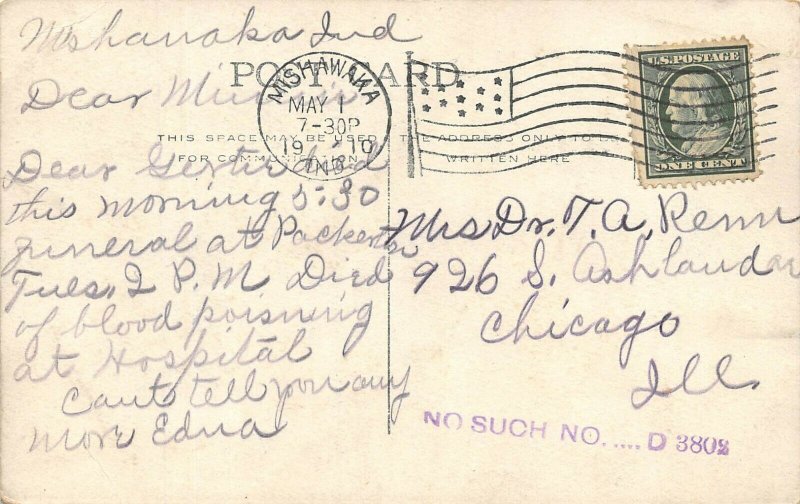 Mishanaka Ind
POST CARD
MISHAWAKA
MAY 1
7-30P
1910
IND.
U.S. POSTAGE
ONE CENT
Dear Minnie
THIS SPACE MAY BE USED
FOR COMMUNICATION
THE ADDRESS ONLY TO BE
WRITTEN HERE
Dear Gertie died
this morning 5:30
funeral at Packerton
Tues. 2 P.M. Died
of blood poisning
at Hospital
Cant tell you any
more Edna
Mrs Dr. T. A. Renn
926 S. Ashland av
Chicago
Ill.
NO SUCH NO. .... D 3802